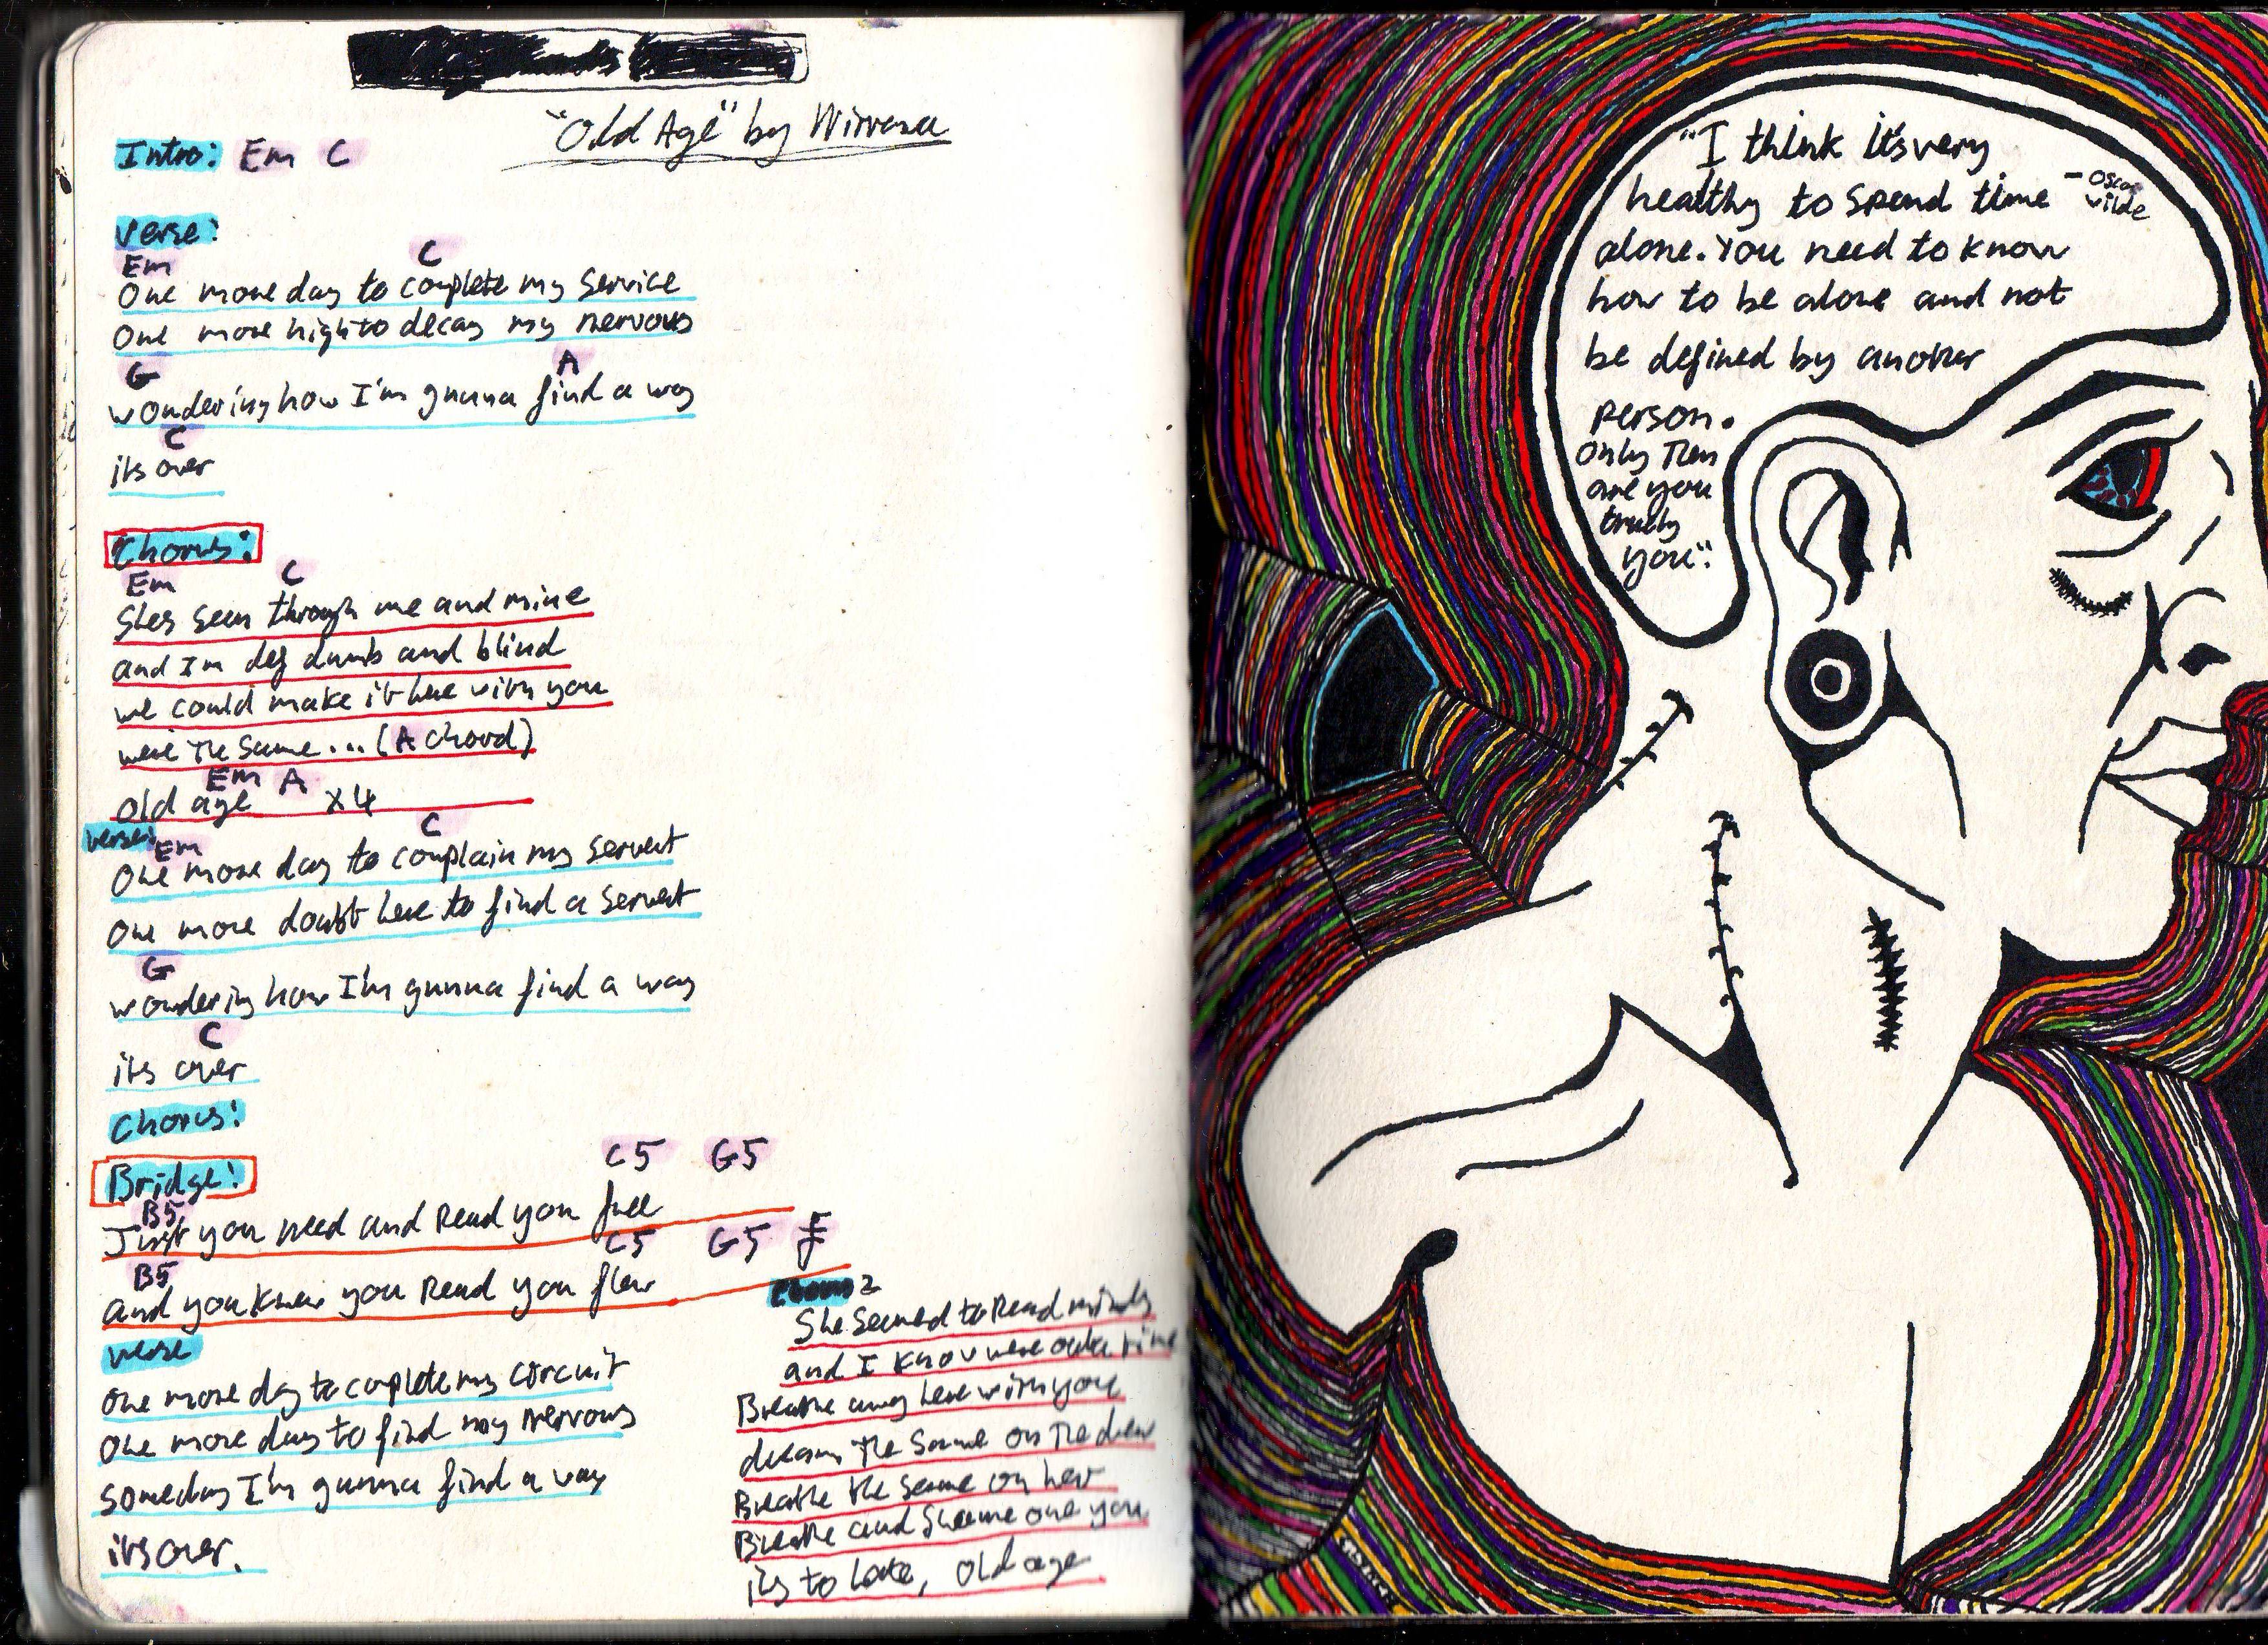 "Old Age" by Nirvana
Intro: Em C
Verse:
Em C
One more day to complete my service
One more high to decay my nervous
G A
wondering how I'm gunna find a way
C
its over
Chorus:
Em C
Shes seen through me and mine
and Im def dumb and blind
we could make it here with you
were the same... (A chord)
Em A
old age x4
verse:
Em C
One more day to complain my servent
One more doubt here to find a servent
G
wondering how I'm gunna find a way
C
its over
Chorus:
Bridge:
C5 G5
B5
Just you need and Read you
C5 G5 F
B5
and you knew you Read you flew
verse
One more day to complete my circuit
One more day to find my nervous
someday I'm gunna find a way
its over.
Chorus 2
She seemed to Read minds
and I know were outa time
Breathe away here with you
dream the same on the dew
Breathe the same on her
Breathe and Shame one you
its to late, old age
"I think it's very
healthy to spend time
- Oscar
wilde
alone. You need to know
how to be alone and not
be defined by another
person.
Only Then
are you
trully
you".